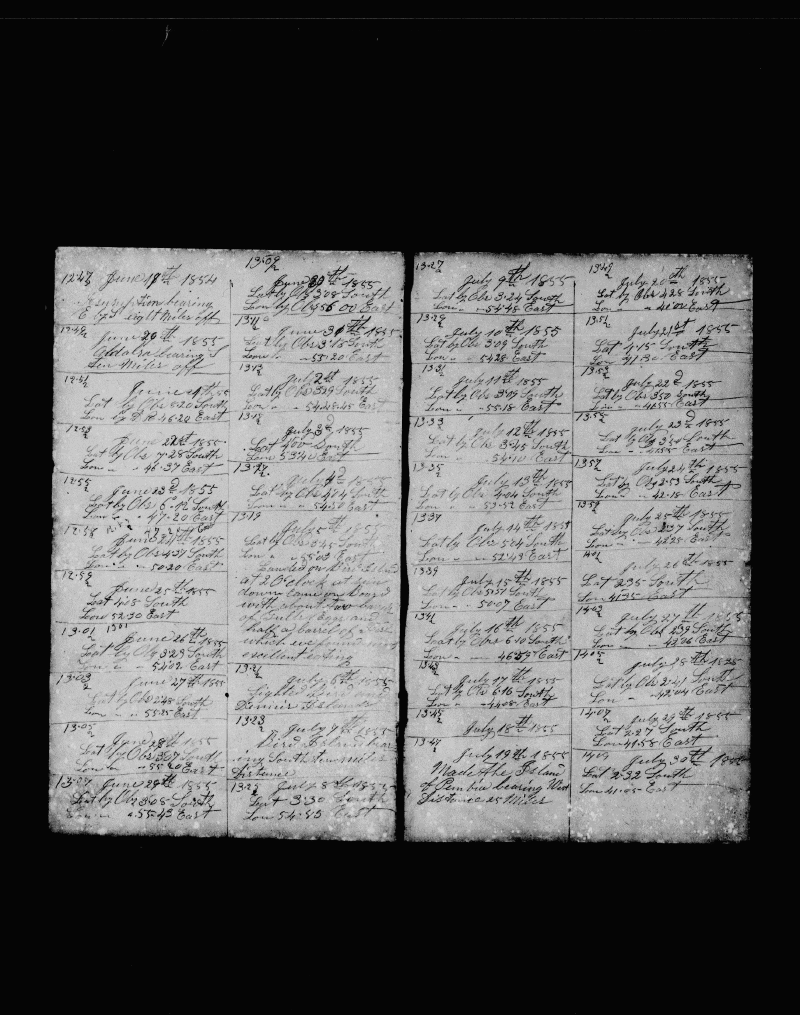 12.47 June 19th 1854
bearing
Eight Miles off
12.49 June 20th 1855
Aldabra bearing S
Ten Miles off
12.51 June 1855
Lat by Obs 6.20 South
Lon by 46.20 East
12.53 June 22d 1855
Lat by Obs 7.28 South
Lon " " 46.37 East
12.55 June 23d 1855
Lat by Obs South
Lon " 47.20 East
12.58
June 24th 1855
Lat by Obs 4.37 South
Lon " " 50.20 East
12.59
June 25th 1855
Lat 4.05 South
Lon 52.30 East
13.01 1301
June 26th 1855
Lat by Obs 3.29 South
Lon " " 54.02 East
13.03
June 27th 1855
Lat by Obs 2.48 South
Lon " " 55.25 East
13.05
June 28th 1855
Lat by Obs South
Lon " 55.20 East
13.07 June 29th 1855
Lat by Obs 3.08 South
Lon " " 55.43 East
13.09
June 30th 1855
Lat by Obs 3.08 South
Lon by Obs 56.00 East
13.11 June 30th 1855
Lat by Obs 3.15 South
Lon " " 55.20 East
13.13
July 2d 1855
Lat by Obs 3.29 South
Lon " " 54.48.45 East
July 3d 1855
Lat 4.00 South
Lon 53.40 East
13.17
July 4th
Lat by Obs 4.04 South
Lon " " 54.50 East
13.19
July 5th 1855
Lat by Obs 3.45 South
Lon " " 55.03 East
Landed on Bird Island
at 2 O'clock at sun
down came on board
with about two
of Gulls Eggs and
half a barrel of
which we found most
excellent eating
13.21
July 6th 1855
Sighted Bird and
Dennis Islands
13.23
July 7th 1855
Bird Island bear
ing South Ten miles
Distance
13.25 July 8th 1855
Lat 3.30 South
Lon 54.53 East
13.27
July 9th 1855
Lat by Obs 3.24 South
Lon " " 54.48 East
13.29
July 10th 1855
Lat by Obs 3.09 South
Lon " " 54.28 East
13.31
July 11th 1855
Lat by Obs South
Lon " " 55.18 East
13.33
July 12th 1855
Lat by Obs 3.45 South
Lon " " 54.10 East
13.35
July 13th 1855
Lat by Obs 4.04 South
Lon " " 53.52 East
13.37
July 14th 1855
Lat by Obs 5.04 South
Lon " " 52.43 East
13.39
July 15th 1855
Lat by Obs 5.57 South
Lon " " 50.07 East
13.41
July 16th 1855
Lat by Obs 6.10 South
Lon " " 46.59 East
13.43
July 17th 1855
Lat by Obs 6.16 South
Lon " " 44.08 East
13.45
July 18th 1855
13.47
July 19th 1855
Made the Island
of Pemba bearing West
Distance 25 Miles
13.49
July 20th 1855
Lat by Obs 4.28 South
Lon " " 40.02 East
13.51
July 21st 1855
Lat 4.15 South
Lon 41.30 East
13.53
July 22d 1855
Lat by Obs 3.50 South
Lon " " 41.55 East
13.55
July 23d 1855
Lat by Obs South
Lon " " 41.55 East
13.57
July 24th 1855
Lat by Obs 2.53 South
Lon " " 42.18 East
13.59
July 25th 1855
Lat by Obs 2.37 South
Lon " " 42.25 East
1401
July 26th 1855
Lat 2.35 South
Lon 41.35 East
14.03
July 27th 1855
Lat by Obs 2.39 South
Lon " " 42.06 East
14.05
July 28th 1855
Lat by Obs 2.41 South
Lon " " 42.04 East
14.07
July 29th 1855
Lat 2.27 South
Lon 41.58 East
14.09
July 30th 1855
Lat 2.32 South
Lon 41.05 East